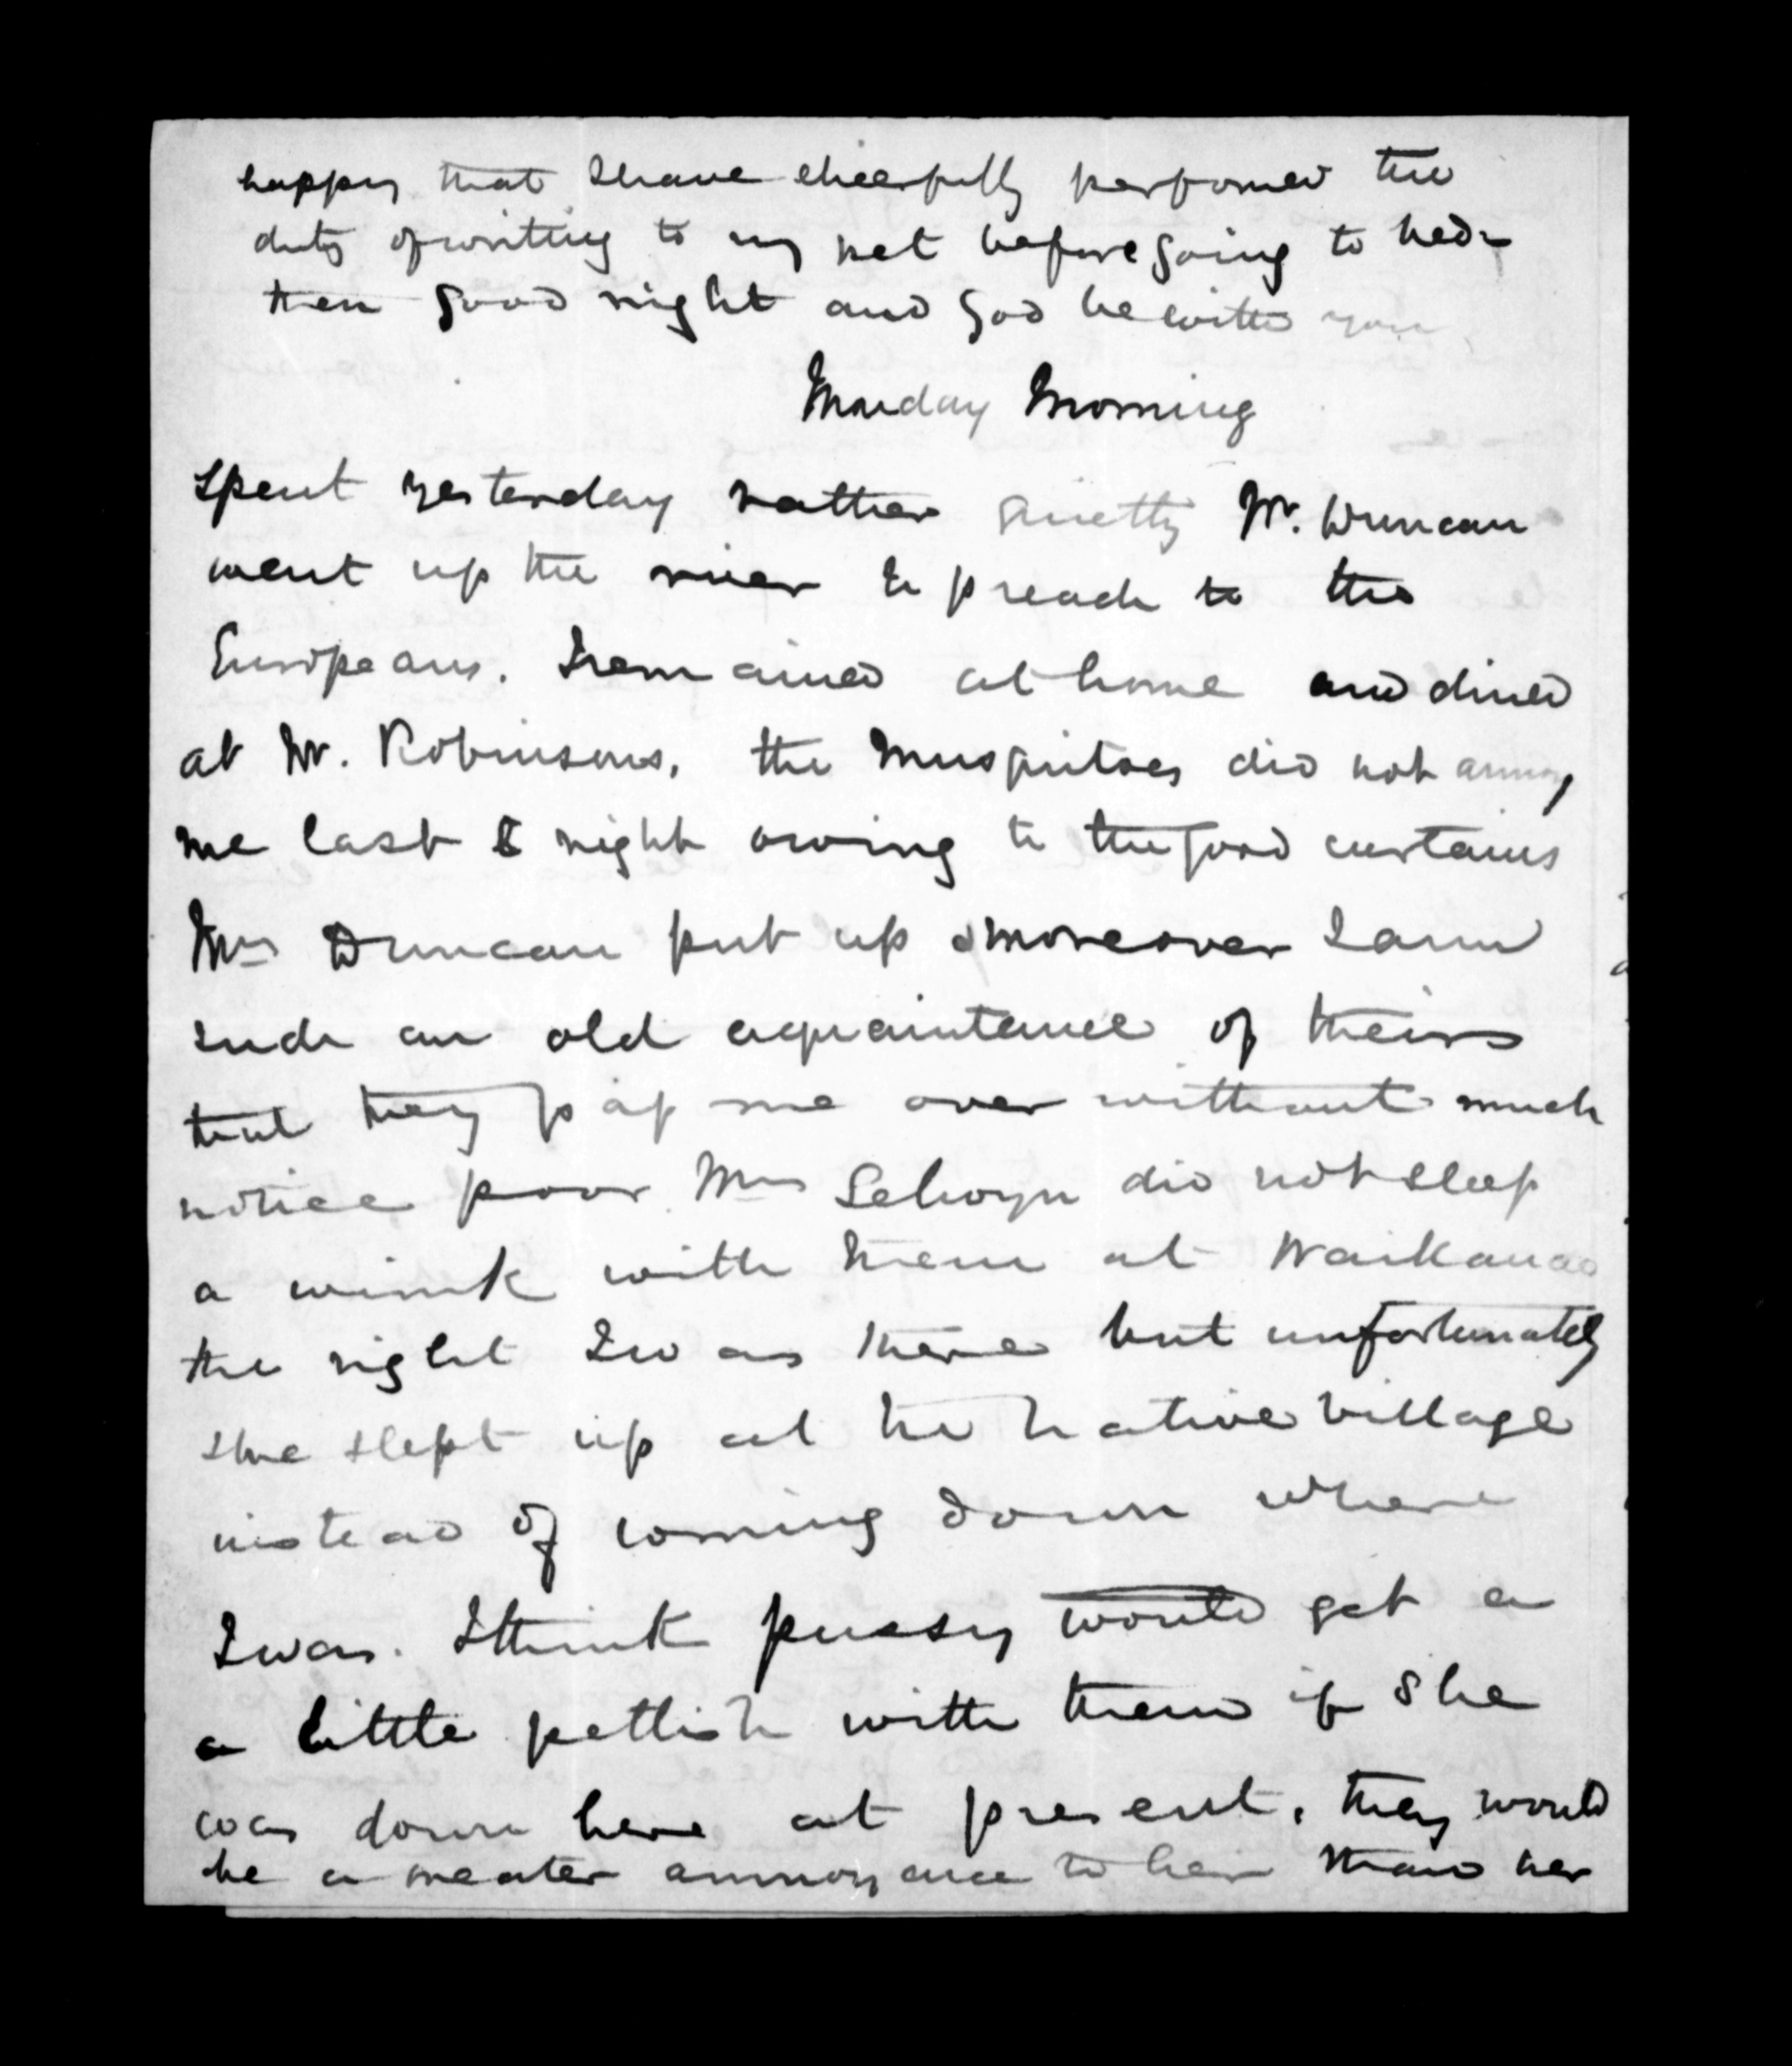 happy that I have cheerfully perfomed the
duty of writing to my pet before going to bed -
then good night and God be with you
Monday Morning
Spent yesterday rather quietly Mr. Duncan
went up the river to preach to the
Europeans. I remained at home and dined
at Mr. Robinsons. the Musquitoes did not annoy
me last night owing to the good curtains
Mrs Duncan put up & moreover I am
such an old aquaintance of theirs
that they pass me over without much
notice poor Mrs Selwyn did not sleep
a wink with them at Waikanae
the night I was there but unfortunately
she slept up at the Native Village
instead of coming down where
I was. I think pussy would get a
a little pettish with them if she
was down here at present. they would
be a greater annoyance to her than her